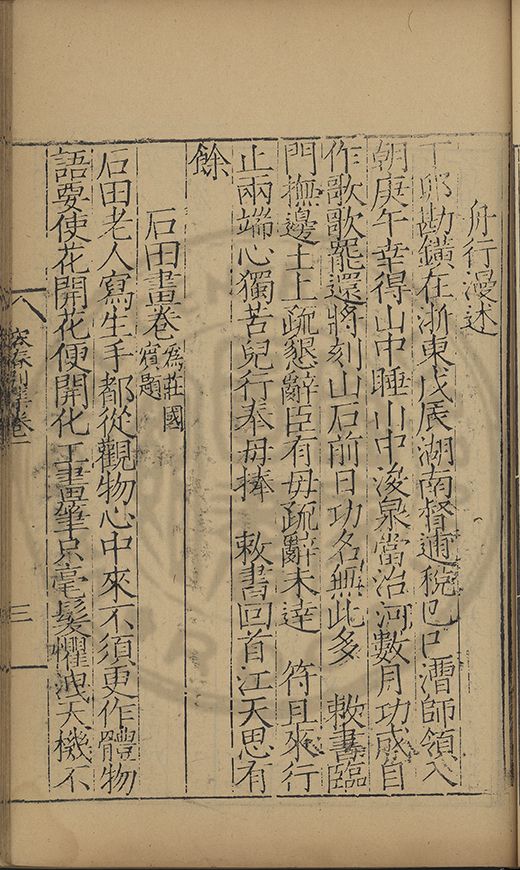 舟行漫述
丁卯勘鑛在浙東戊辰湖南督逋稅己巳漕師領入
朝庚午幸得山中睡山中浚泉當治河數月功成自
作歌歌罷還將刻山石前日功名無此多　敕書臨
門撫邊土上疏懇辭臣有母疏辭未達　符且來行
止兩端心獨苦兒行奉母捧　敕書回首江天思有
餘
石田畫卷爲莊國賓題
石田老人寫生手都從觀物心中來不須更作體物
語要使花開花便開化工畫筆只毫髮懼洩天機不
卷
三